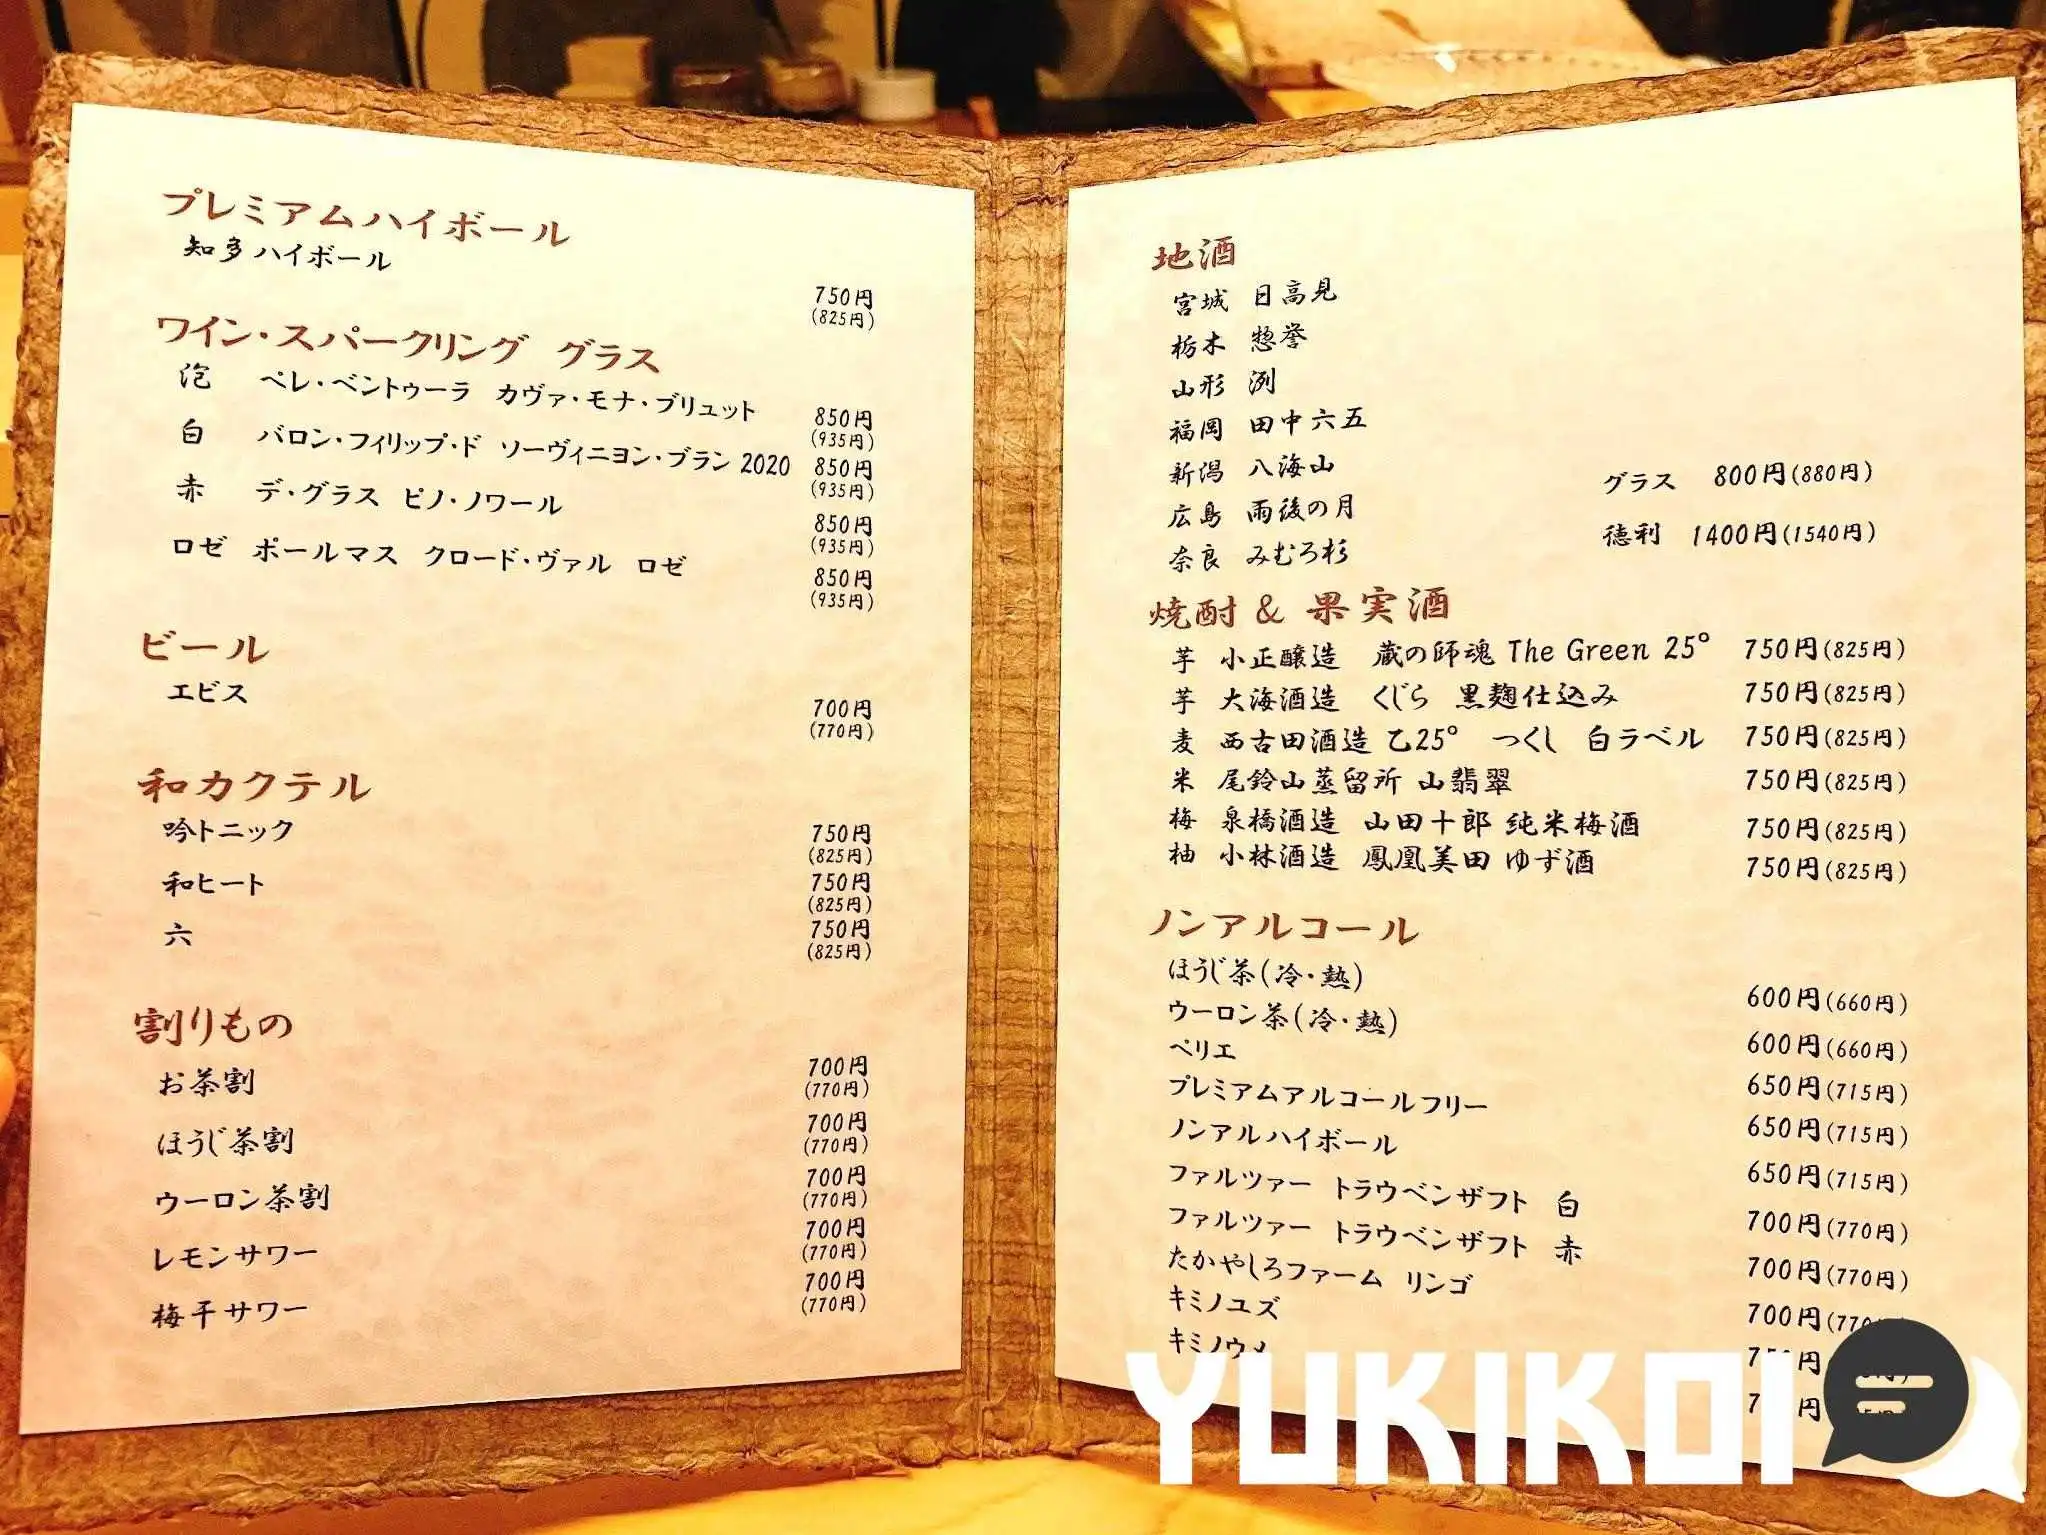 プレミアムハイボール
知多ハイボール
750円
(825円)
ワイン・スパークリング グラス
泡 ペレ・ベントゥーラ カヴァ・モナ・ブリュット
850円
(935円)
白 バロン・フィリップ・ド ソーヴィニヨン・ブラン 2020
850円
(935円)
赤 デ・グラス ピノ・ノワール
850円
(935円)
ロゼ ポールマス クロード・ヴァル ロゼ
850円
(935円)
ビール
エビス
700円
(770円)
和カクテル
吟トニック
750円
(825円)
和ヒート
750円
(825円)
六
750円
(825円)
割りもの
お茶割
700円
(770円)
ほうじ茶割
700円
(770円)
ウーロン茶割
700円
(770円)
レモンサワー
700円
(770円)
梅干サワー
700円
(770円)
地酒
宮城 日高見
栃木 惣誉
山形 洌
福岡 田中六五
新潟 八海山
広島 雨後の月
奈良 みむろ杉
グラス 800円(880円)
徳利 1400円(1540円)
焼酎 & 果実酒
芋 小正醸造 蔵の師魂 The Green 25° 750円(825円)
芋 大海酒造 くじら 黒麹仕込み 750円(825円)
麦 西吉田酒造 乙25° つくし 白ラベル 750円(825円)
米 尾鈴山蒸留所 山翡翠 750円(825円)
梅 泉橋酒造 山田十郎 純米梅酒 750円(825円)
柚 小林酒造 鳳凰美田 ゆず酒 750円(825円)
ノンアルコール
ほうじ茶(冷・熱) 600円(660円)
ウーロン茶(冷・熱) 600円(660円)
ペリエ 650円(715円)
プレミアムアルコールフリー 650円(715円)
ノンアルハイボール 650円(715円)
ファルツァー トラウベンザフト 白 700円(770円)
ファルツァー トラウベンザフト 赤 700円(770円)
たかやしろファーム リンゴ 700円(770
キミノユズ
キミノウメ
YUKIKOI